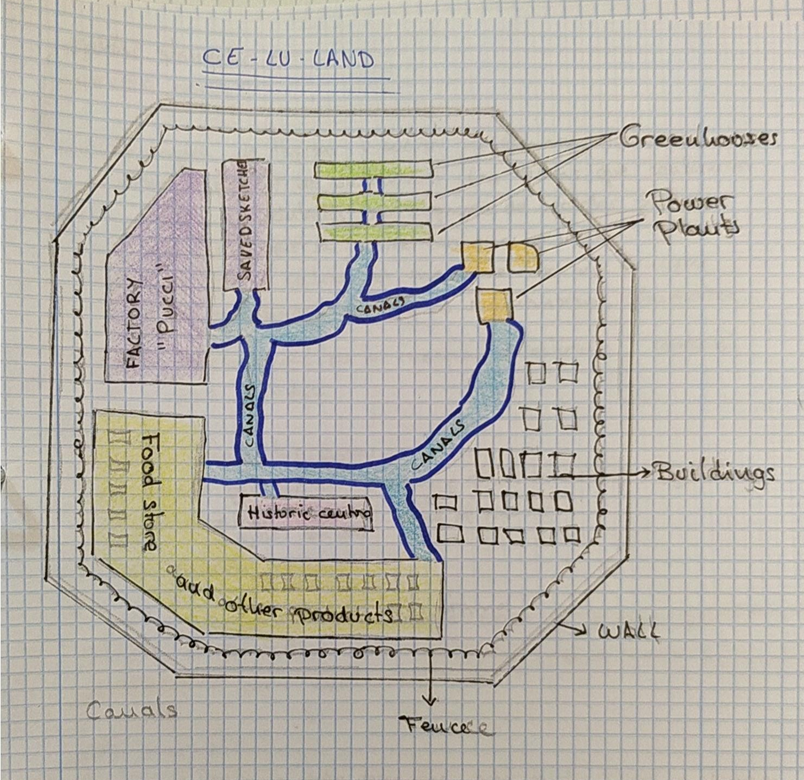 CE-LU-LAND
Greenhooses
Power
Plants
SAVEDSKETCHE
FACTORY
"Pucci"
CANALS
CANALS
CANALS
Food store
and other products
Historic centro
Buildings
WALL
Canals
Fencese